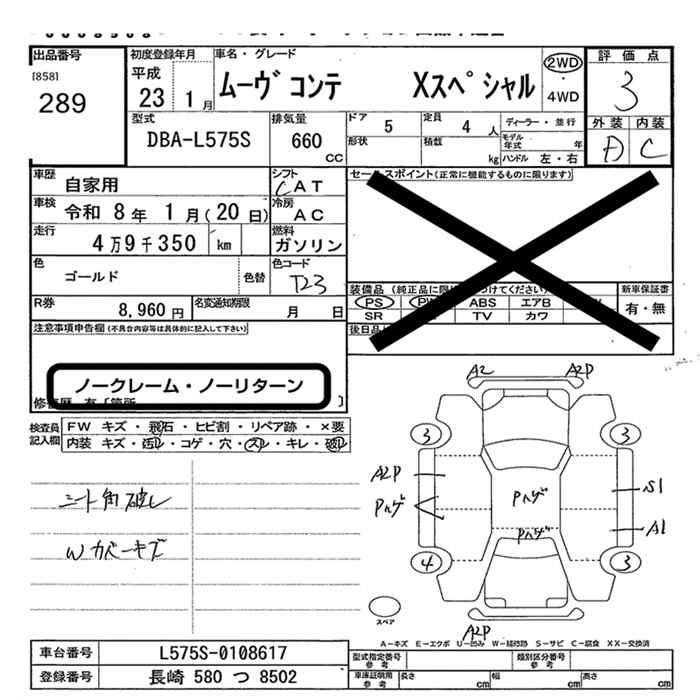 出品番号
[858]
289
初度登録年月
平成
23 1月
車名・グレード
ムーヴコンテ Xスペシャル
2WD
・
4WD
評価点
3
型式
DBA-L575S
排気量
660
CC
ドア 5
定員 4 人
ディーラー・並行
形状
積載 kg
モデル年式 年
ハンドル 左・右
外装 内装
A C
車歴 自家用
シフト CAT
セールスポイント(正常に機能するものに限ります)
車検 令和 8年 1月(20日)
冷房 AC
走行 4万9千350 km
燃料 ガソリン
色 ゴールド 色替
色コード T23
装備品
PS ABS エアB
SR TV カワ
新車保証書
有・無
R券 8,960円
名変通知期限 月 日
注意事項申告欄(不具合内容等は具体的に記入して下さい)
ノークレーム・ノーリターン
検査員記入欄
FW キズ・飛石・ヒビ割・リペア跡・×要
内装 キズ・汚れ・コゲ・穴・スレ・キレ・破れ
シート角破レ
Wカバーキズ
A2 A2P
3 3
A2P
Pハゲ
Pハゲ
Pハゲ
S1
A1
4 3
A2P
スペア
A-キズ E-エクボ U-凹み W-補修跡 S-サビ C-腐食 XX-交換済
車台番号 L575S-0108617
登録番号 長崎 580 つ 8502
型式指定番号 参考
類別区分番号 参考
車庫証明用 参考
長さ cm 幅 cm 高さ cm